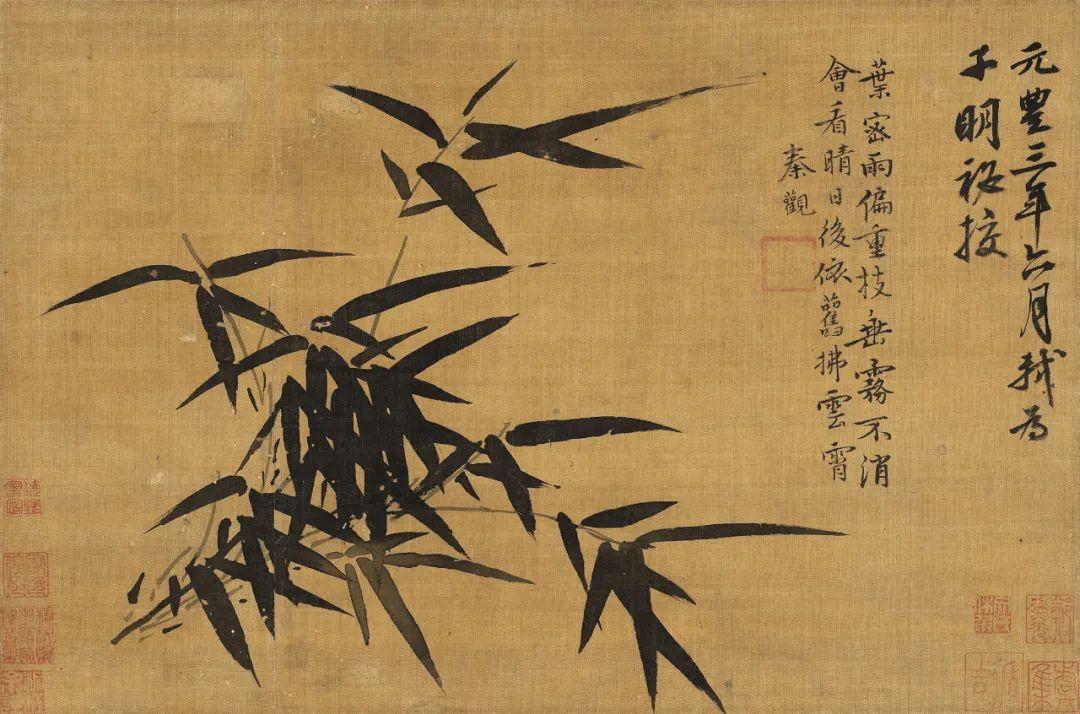 元豐三年六月軾為
子明祕挍
葉密雨偏重枝垂霧不消
會看晴日後依舊拂雲霄
秦觀